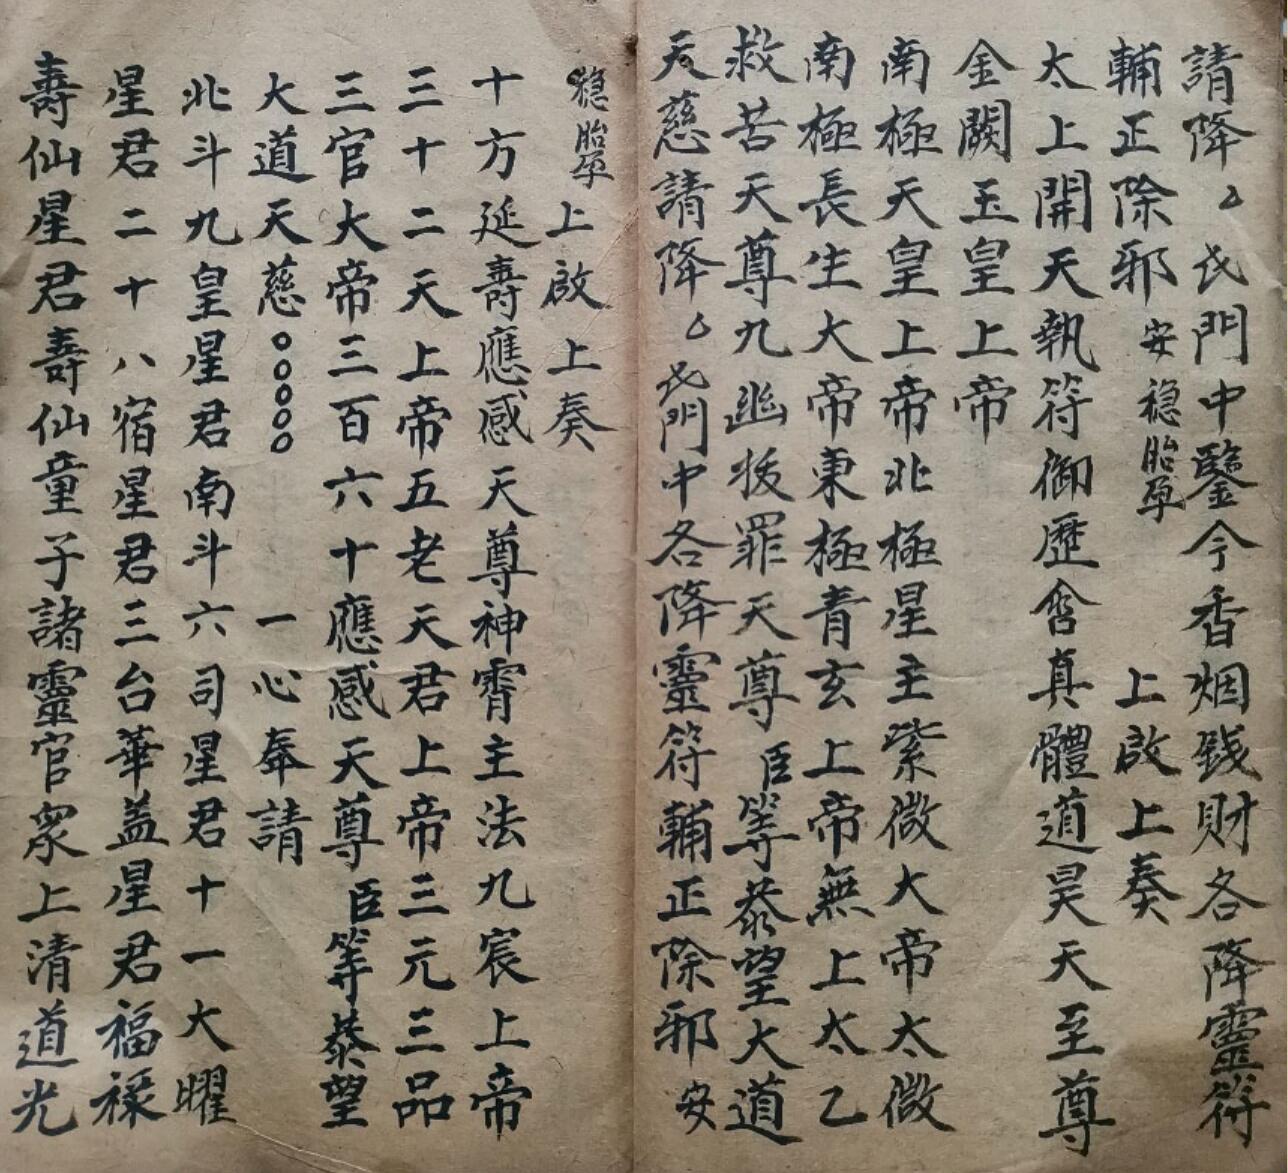 請降厶氏門中鑒今香烟銭財各降靈符
輔正除邪安穩胎孕 上啟上奏
太上開天執符御歷含真體道昊天至尊
金闕玉皇上帝
南極天皇上帝北極星主紫微大帝太微
南極長生大帝東極青玄上帝無上太乙
救苦天尊九幽拔罪天尊臣等恭望大道
天慈請降厶氏門中各降靈符輔正除邪安
穩胎孕上啟上奏
十方延壽應感天尊神霄主法九宸上帝
三十二天上帝五老天君上帝三元三品
三官大帝三百六十應感天尊臣等恭望
大道天慈○○○○○ 一心奉請
北斗九皇星君南斗六司星君十一大曜
星君二十八宿星君三台華盖星君福祿
壽仙星君壽仙童子諸靈官眾上清道光